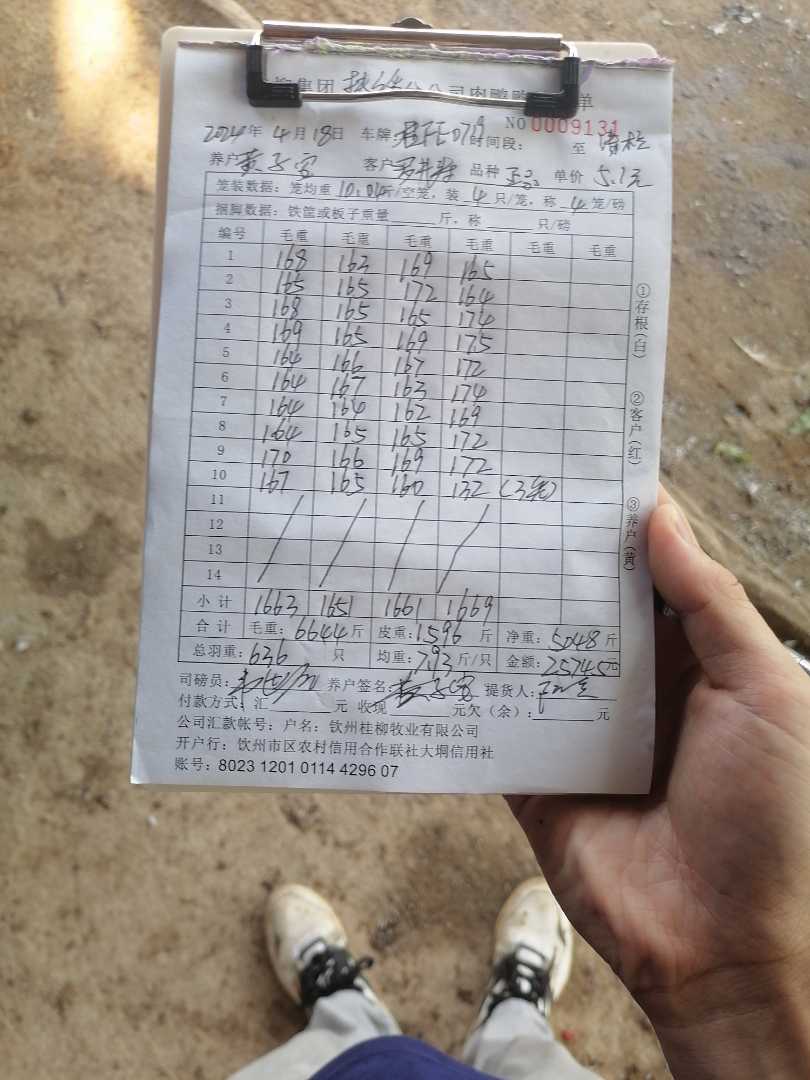 集团 公司肉鸭 单
NO 0009131
2024年 4月18日 车牌 时间段: 至
养户 黄 客户 品种 单价 5.1元
笼装数据:笼均重 10.04斤/空笼,装 4 只/笼,称 4 笼/磅
捆脚数据:铁筐或板子重量 斤,称 只/磅
编号 毛重 毛重 毛重 毛重 毛重 毛重
1 168 163 169 165
2 165 165 172 164
3 168 165 165 174
4 169 165 169 175
5 164 166 167 172
6 164 167 163 174
7 164 164 162 169
8 164 165 165 172
9 170 166 169 172
10 167 165 160 132 (3笼)
11
12
13
14
小计 1663 1651 1661 1669
合计 毛重:6644斤 皮重:1596斤 净重:5048斤
总羽重:636 只 均重:7.93斤/只 金额:25745元
司磅员: 养户签名: 提货人:
付款方式:汇 元 收现 元欠(余): 元
公司汇款帐号:户名:钦州桂柳牧业有限公司
开户行:钦州市区农村信用合作联社大垌信用社
账号:8023 1201 0114 4296 07
①存根(白)
②客户(红)
③养户(黄)